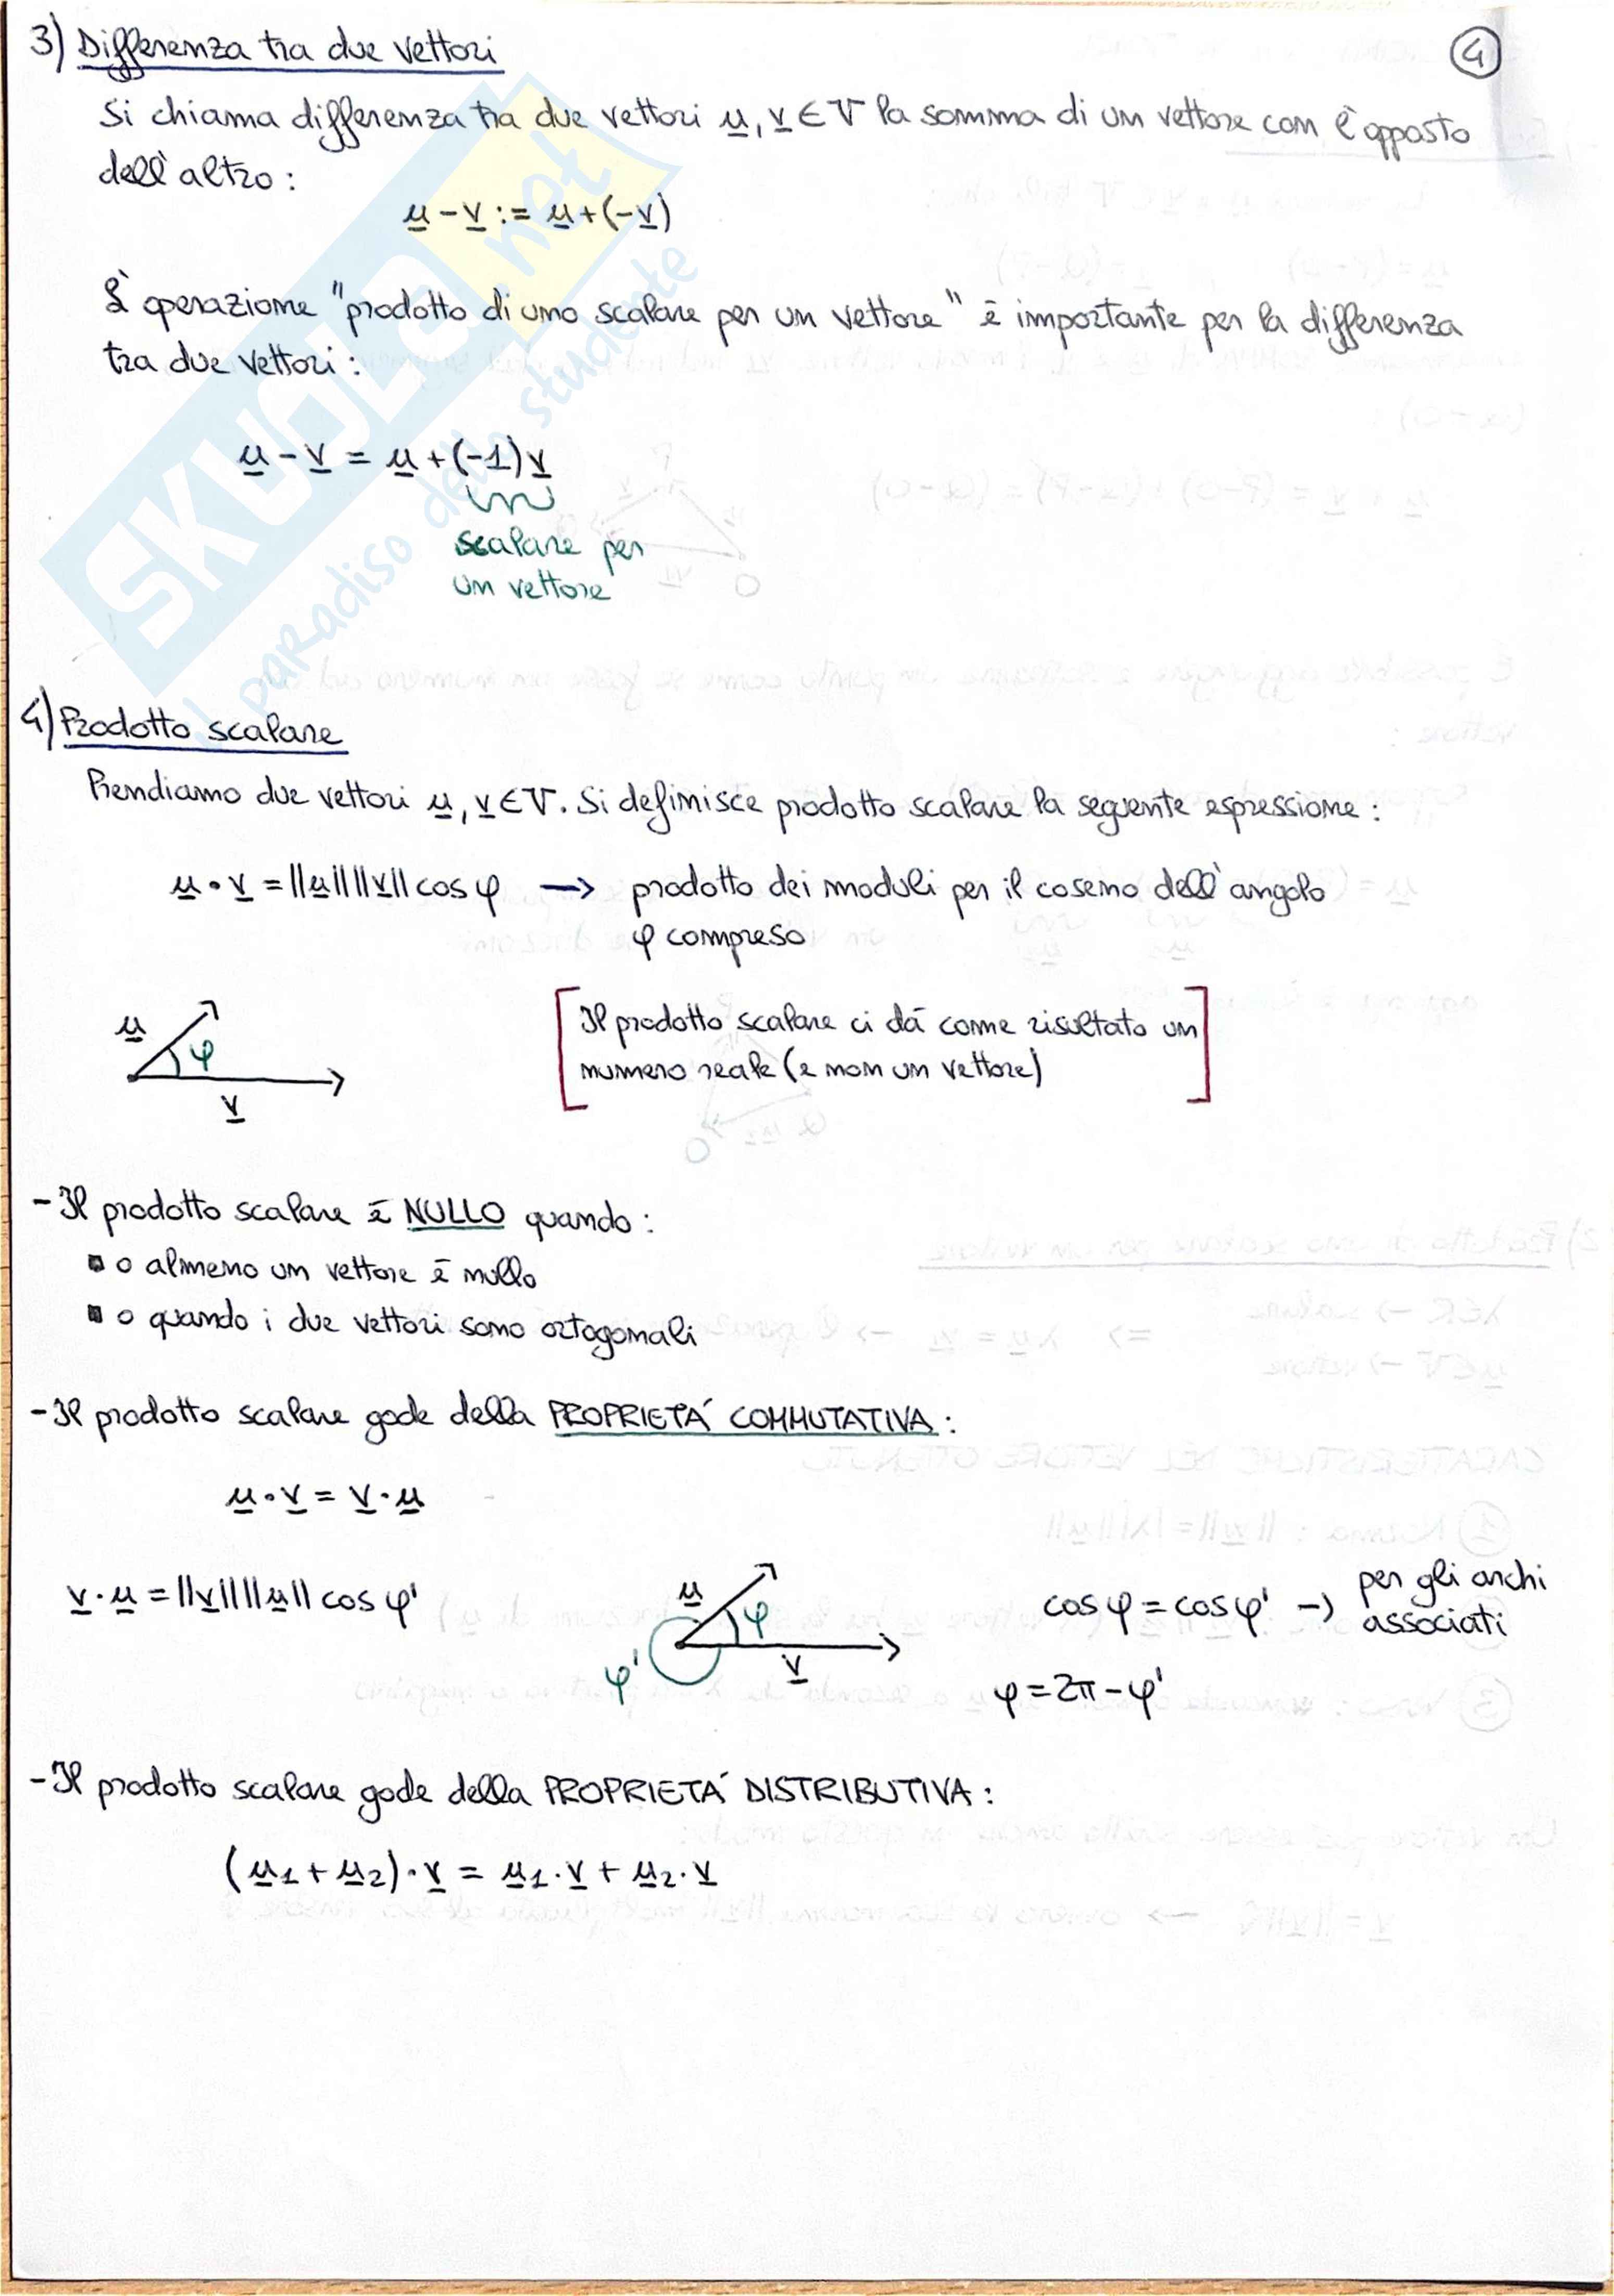 3) Differenza tra due vettori
4
Si chiama differenza tra due vettori u, v ∈ V la somma di un vettore con l'opposto
dell'altro:
u - v := u + (-v)
L'operazione "prodotto di uno scalare per un vettore" è importante per la differenza
tra due vettori:
u - v = u + (-1)v
scalare per
un vettore
SKUOLA.net
il paradiso dello studente
4) Prodotto scalare
Prendiamo due vettori u, v ∈ V. Si definisce prodotto scalare la seguente espressione:
u · v = ||u|| ||v|| cos φ → prodotto dei moduli per il coseno dell'angolo
φ compreso
u
φ
v
[Il prodotto scalare ci dà come risultato un
numero reale (e non un vettore)]
- Il prodotto scalare è NULLO quando:
▪ o almeno un vettore è nullo
▪ o quando i due vettori sono ortogonali
- Il prodotto scalare gode della PROPRIETÀ COMMUTATIVA:
u · v = v · u
v · u = ||v|| ||u|| cos φ'
u
φ
v
φ'
cos φ = cos φ' → per gli archi
associati
φ = 2π - φ'
- Il prodotto scalare gode della PROPRIETÀ DISTRIBUTIVA:
(u1 + u2) · v = u1 · v + u2 · v